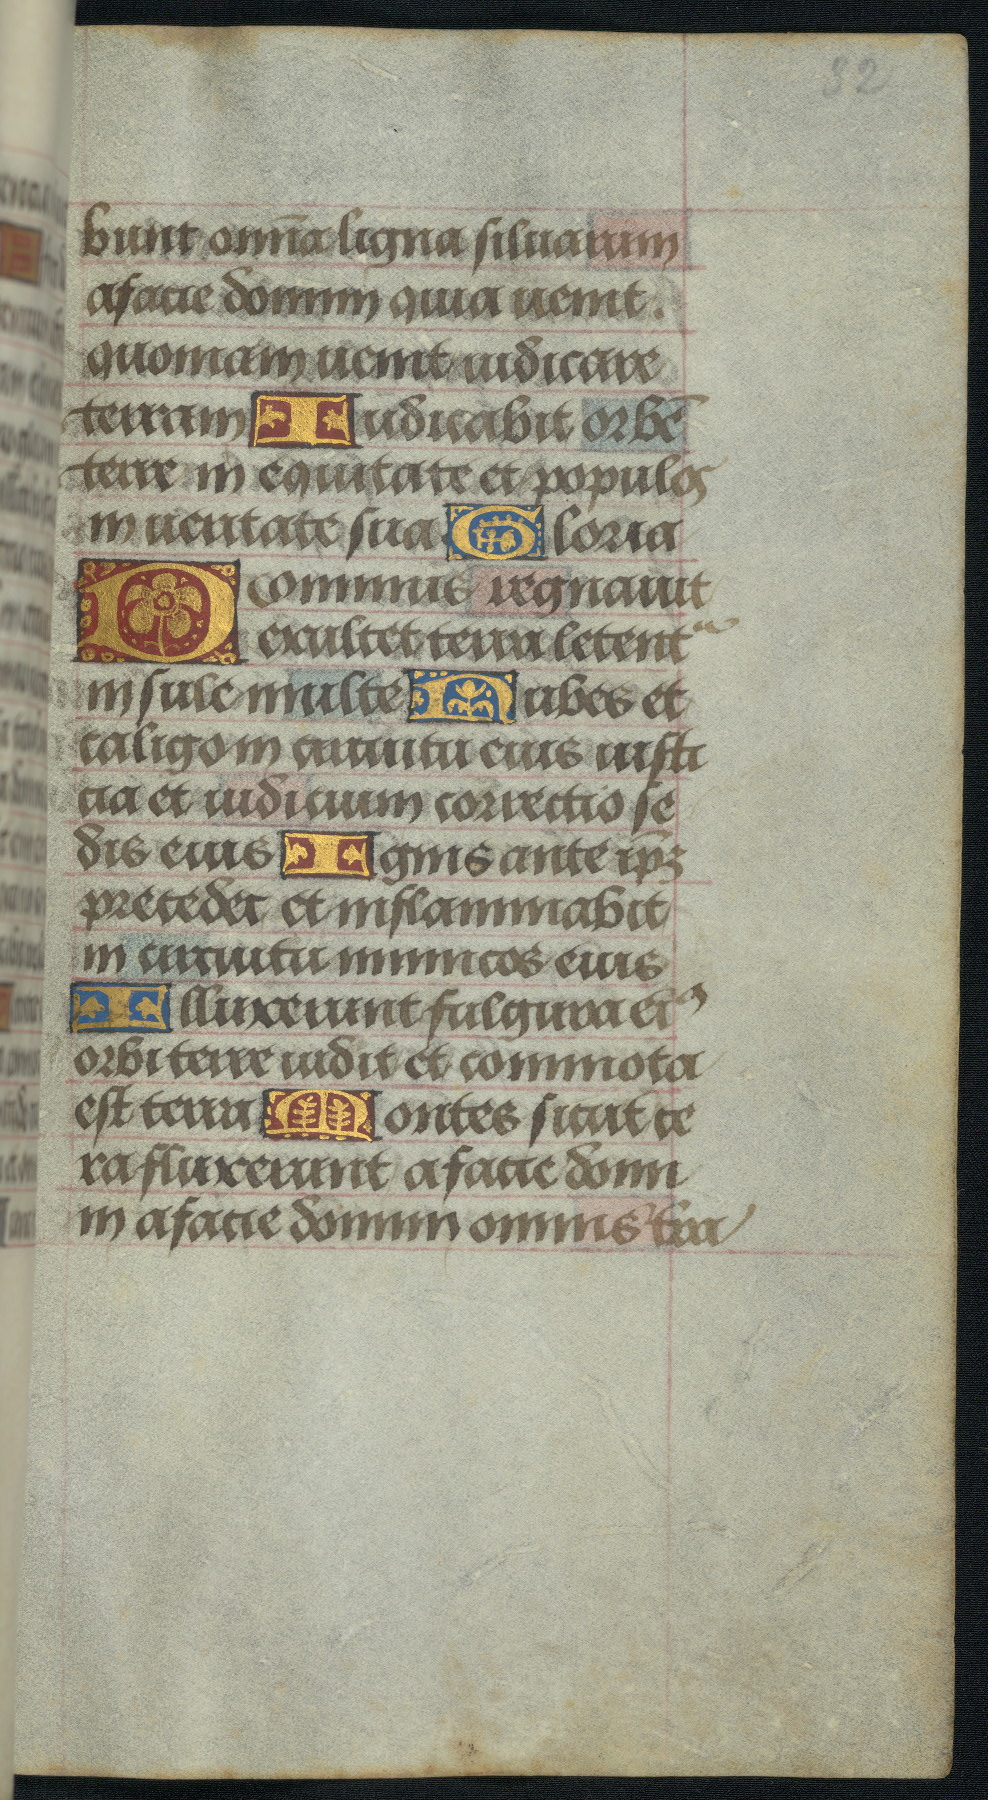 32
bunt om̄a ligna siluarum
a facie domini quia uenit.
quoniam uenit iudicare
terram Iudicabit orbē
terre in equitate et populos
in ueritate sua Gloria
Dominus regnauit
exultet terra letentᵘʳ
insule multe Nubes et
caligo in circuitu eius iusti
cia et iudicium correctio se
dis eius Ignis ante ip̄ꝫ
precedet et inflammabit
in circuitu inimicos eius
Illuxerunt fulgura eiꝰ
orbi terre uidit et commota
est terra Montes sicut ce
ra fluxerunt a facie domi
ni a facie domini omnis tr̄a